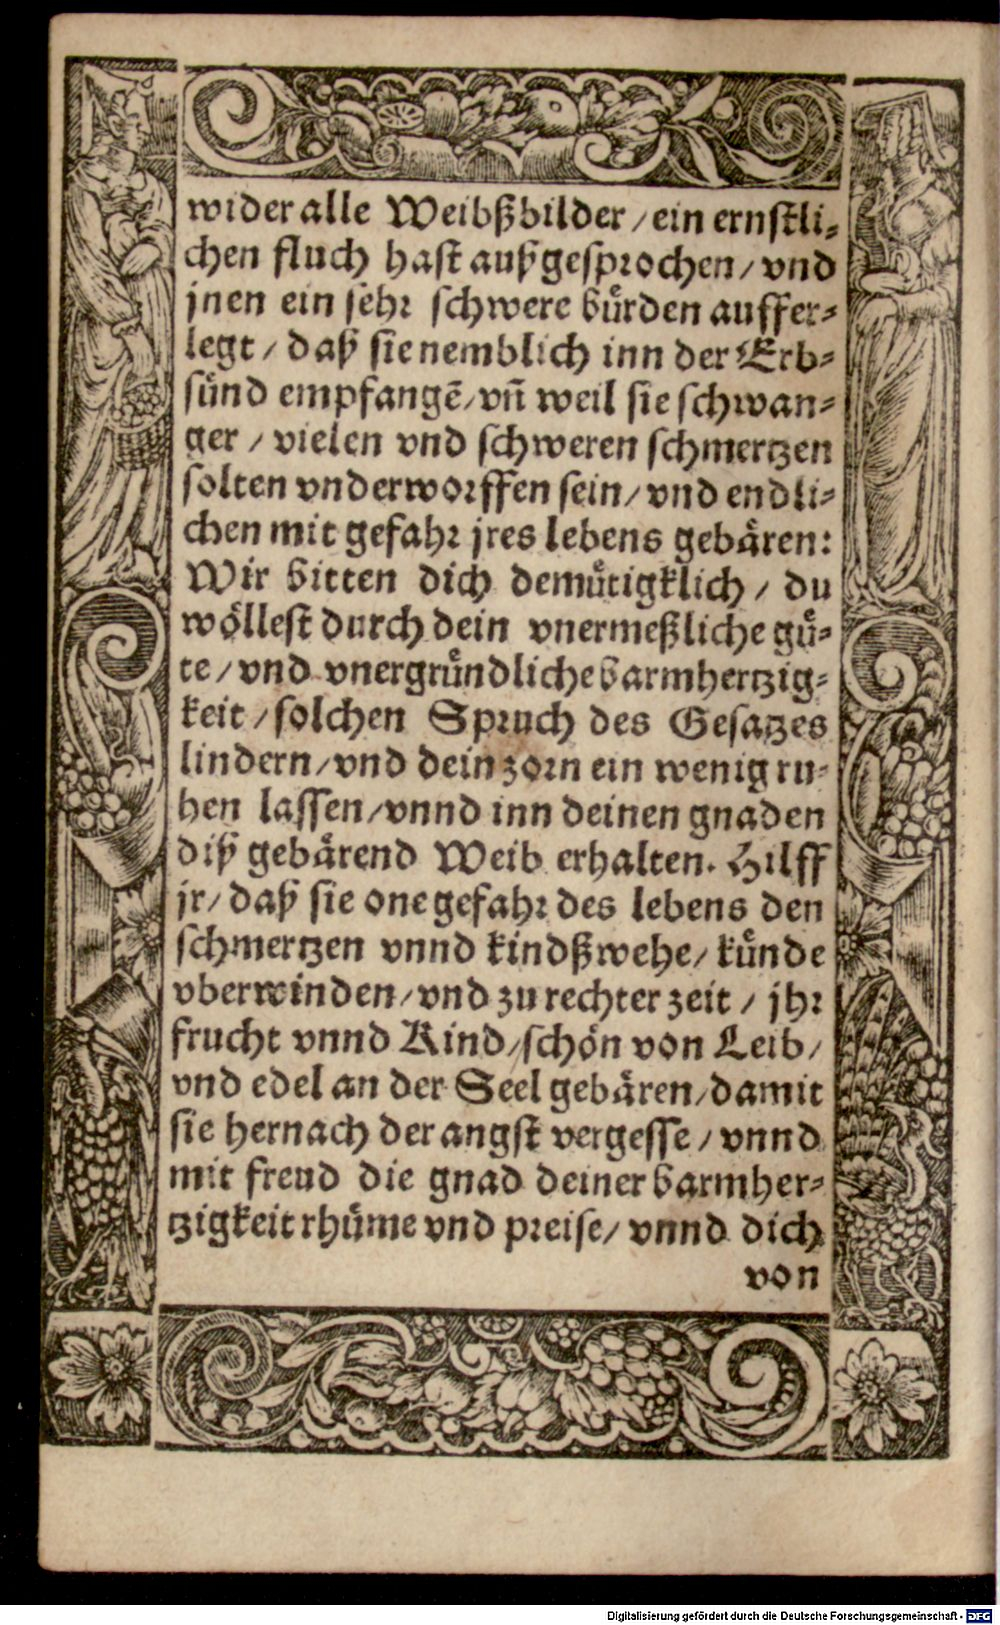 wider alle Weibßbilder / ein ernstli⸗
chen fluch hast außgesprochen / vnd
jnen ein sehr schwere bürden auffer⸗
legt / daß sie nemblich inn der Erb⸗
sünd empfangē / vn̄ weil sie schwan⸗
ger / vielen vnd schweren schmertzen
solten vnderworffen sein / vnd endli⸗
chen mit gefahr jres lebens gebären:
Wir bitten dich demütigklich / du
wöllest durch dein vnermeßliche gü⸗
te / vnd vnergründliche barmhertzig⸗
keit / solchen Spruch des Gesatzes
lindern / vnd dein zorn ein wenig ru⸗
hen lassen / vnnd inn deinen gnaden
diß gebärend Weib erhalten. Hilff
jr / daß sie one gefahr des lebens den
schmertzen vnnd kindßwehe / künde
vberwinden / vnd zu rechter zeit / jhr
frucht vnnd Kind / schön von Leib /
vnd edel an der Seel gebären / damit
sie hernach der angst vergesse / vnnd
mit freud die gnad deiner barmher⸗
tzigkeit rhüme vnd preise / vnnd dich
von
Digitalisierung gefördert durch die Deutsche Forschungsgemeinschaft - DFG